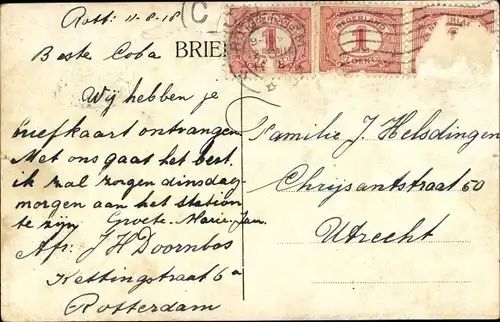 Rott. 11-8-18
Beste Coba
BRIE
Wij hebben je
briefkaart ontvangen.
Met ons gaat het best.
ik zal zorgen dinsdag-
morgen aan het station
te zijn. Groete Marie-Jan.
Afz. J H Doornbos
Kettingstraat 6a
Rotterdam
C
NEDERLAND
1
CENT
NEDERLAND
1
CENT
Familie J. Helsdingen
Chrijsantstraat 60
Utrecht